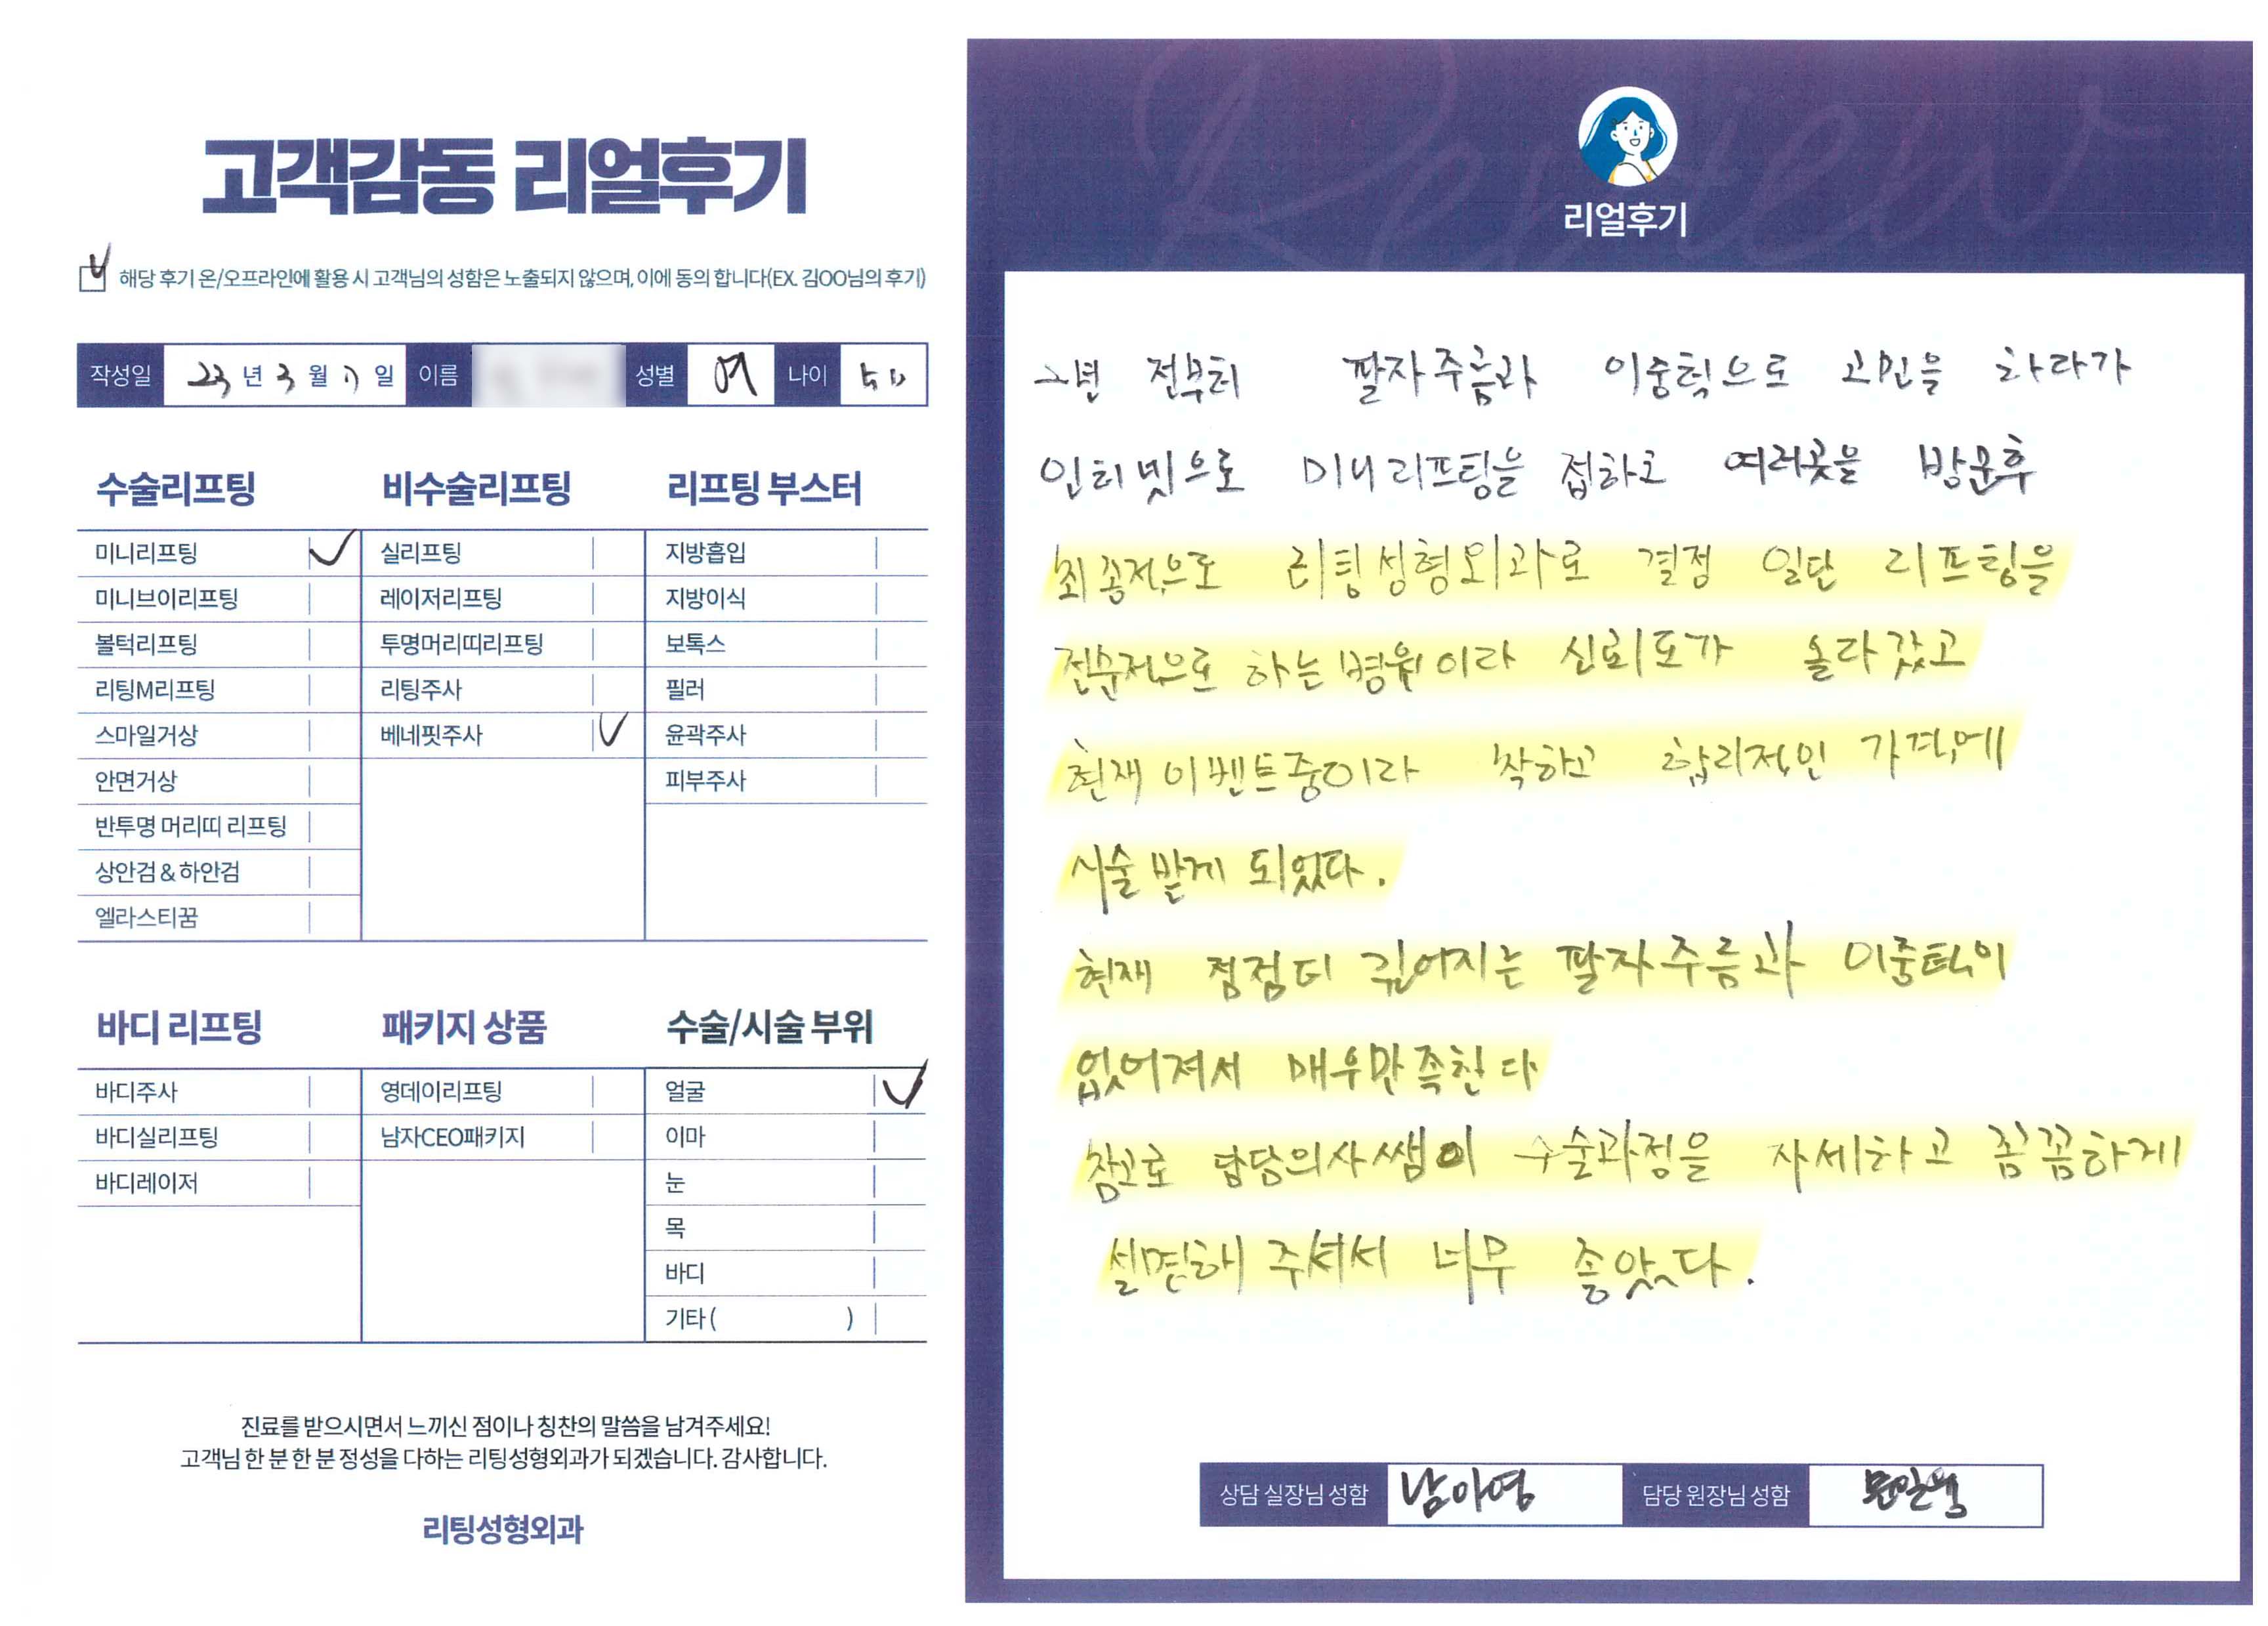 고객감동 리얼후기
해당 후기 온/오프라인에 활용 시 고객님의 성함은 노출되지 않으며, 이에 동의 합니다(EX. 김OO님의 후기)
작성일 23 년 3 월 일 이름 성별 여 나이
수술리프팅
미니리프팅
미니브이리프팅
볼턱리프팅
리팅M리프팅
스마일거상
안면거상
반투명 머리띠 리프팅
상안검 & 하안검
엘라스티꿈
비수술리프팅
실리프팅
레이저리프팅
투명머리띠리프팅
리팅주사
베네핏주사
리프팅 부스터
지방흡입
지방이식
보톡스
필러
윤곽주사
피부주사
바디 리프팅
바디주사
바디실리프팅
바디레이저
패키지 상품
영데이리프팅
남자CEO패키지
수술/시술 부위
얼굴
이마
눈
목
바디
기타 ( )
진료를 받으시면서 느끼신 점이나 칭찬의 말씀을 남겨주세요!
고객님 한 분 한 분 정성을 다하는 리팅성형외과가 되겠습니다. 감사합니다.
리팅성형외과
Review
리얼후기
2년 전부터 팔자주름과 이중턱으로 고민을 하다가
인터넷으로 미니리프팅을 접하고 여러곳을 방문후
최종적으로 리팅성형외과로 결정 일단 리프팅을
전문적으로 하는 병원이라 신뢰도가 올라갔고
현재 이벤트중이라 착하고 합리적인 가격에
시술 받게 되었다.
현재 점점더 깊어지는 팔자주름과 이중턱이
없어져서 매우만족한다
참고로 담당의사쌤이 수술과정을 자세하고 꼼꼼하게
설명해 주셔서 너무 좋았다.
상담 실장님 성함 남아영 담당 원장님 성함